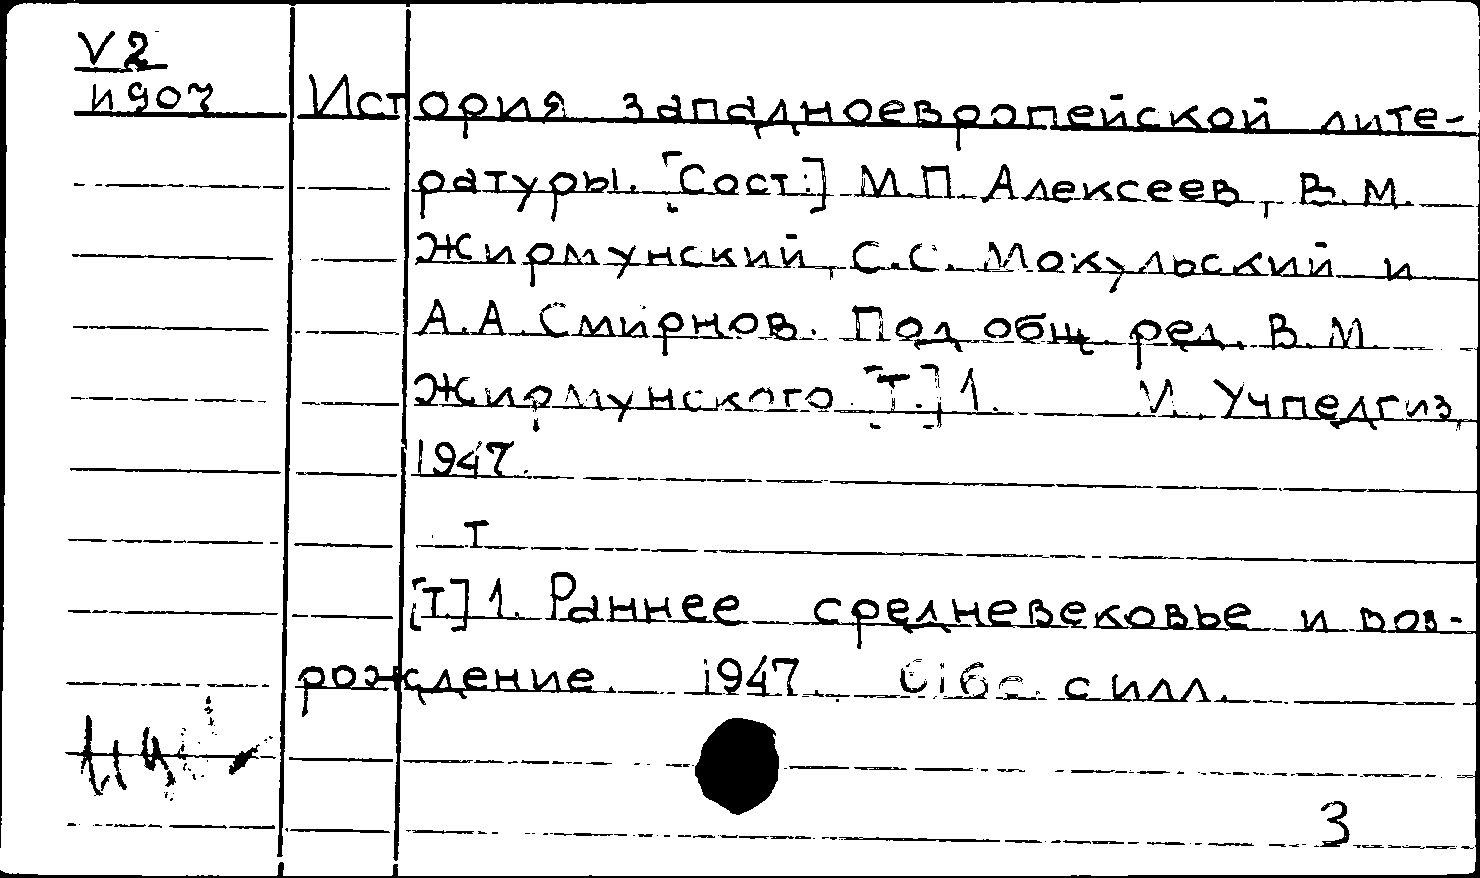 V2
И907
История западноевропейской лите-
ратуры. [Сост.:] М.П. Алексеев, В.М.
Жирмунский, С.С. Мокульский и
А.А. Смирнов. Под общ. ред. В.М.
Жирмунского. [Т.] 1. М. Учпедгиз,
1947.
Т
[Т.] 1. Раннее средневековье и воз-
рождение. 1947. с илл.
3